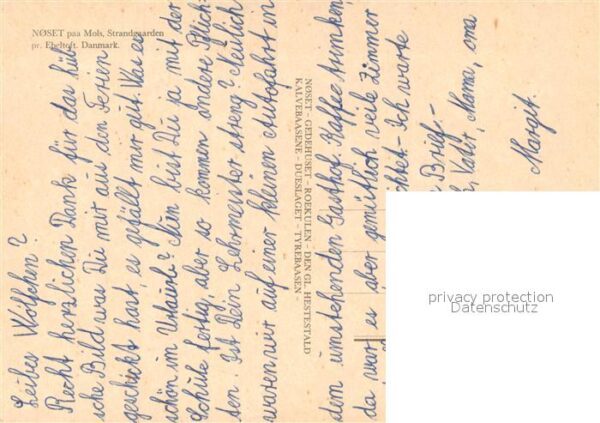 NØSET paa Mols, Strandgaarden
pr. Ebeltoft. Danmark.
Leibes Wölfchen?
Recht herzlichen Dank für das hüb-
sche Bild was Du mir aus den Ferien
geschickt hast, es gefällt mir gut. Was es
schön im Urlaub? Nun bist Du ja mit der
Schule fertig, aber so kommen andere Plich-
ten. Ist Dein Lehrmeister streng? Neulich
waren wir auf einer kleinen Autofahrt in
NØSET - GEDEHUSET - ROEKULEN - DEN GL. HESTESTALD
KALVEBAASENE - DUESLAGET - TYREBAASEN -
dem umstehenden Gasthof Kaffee trinken,
da war es aber gemütlich veile Zimmer
chtet - Ich warte
Brief. -
Vater, Mama, oma
Margit.
privacy protection
Datenschutz